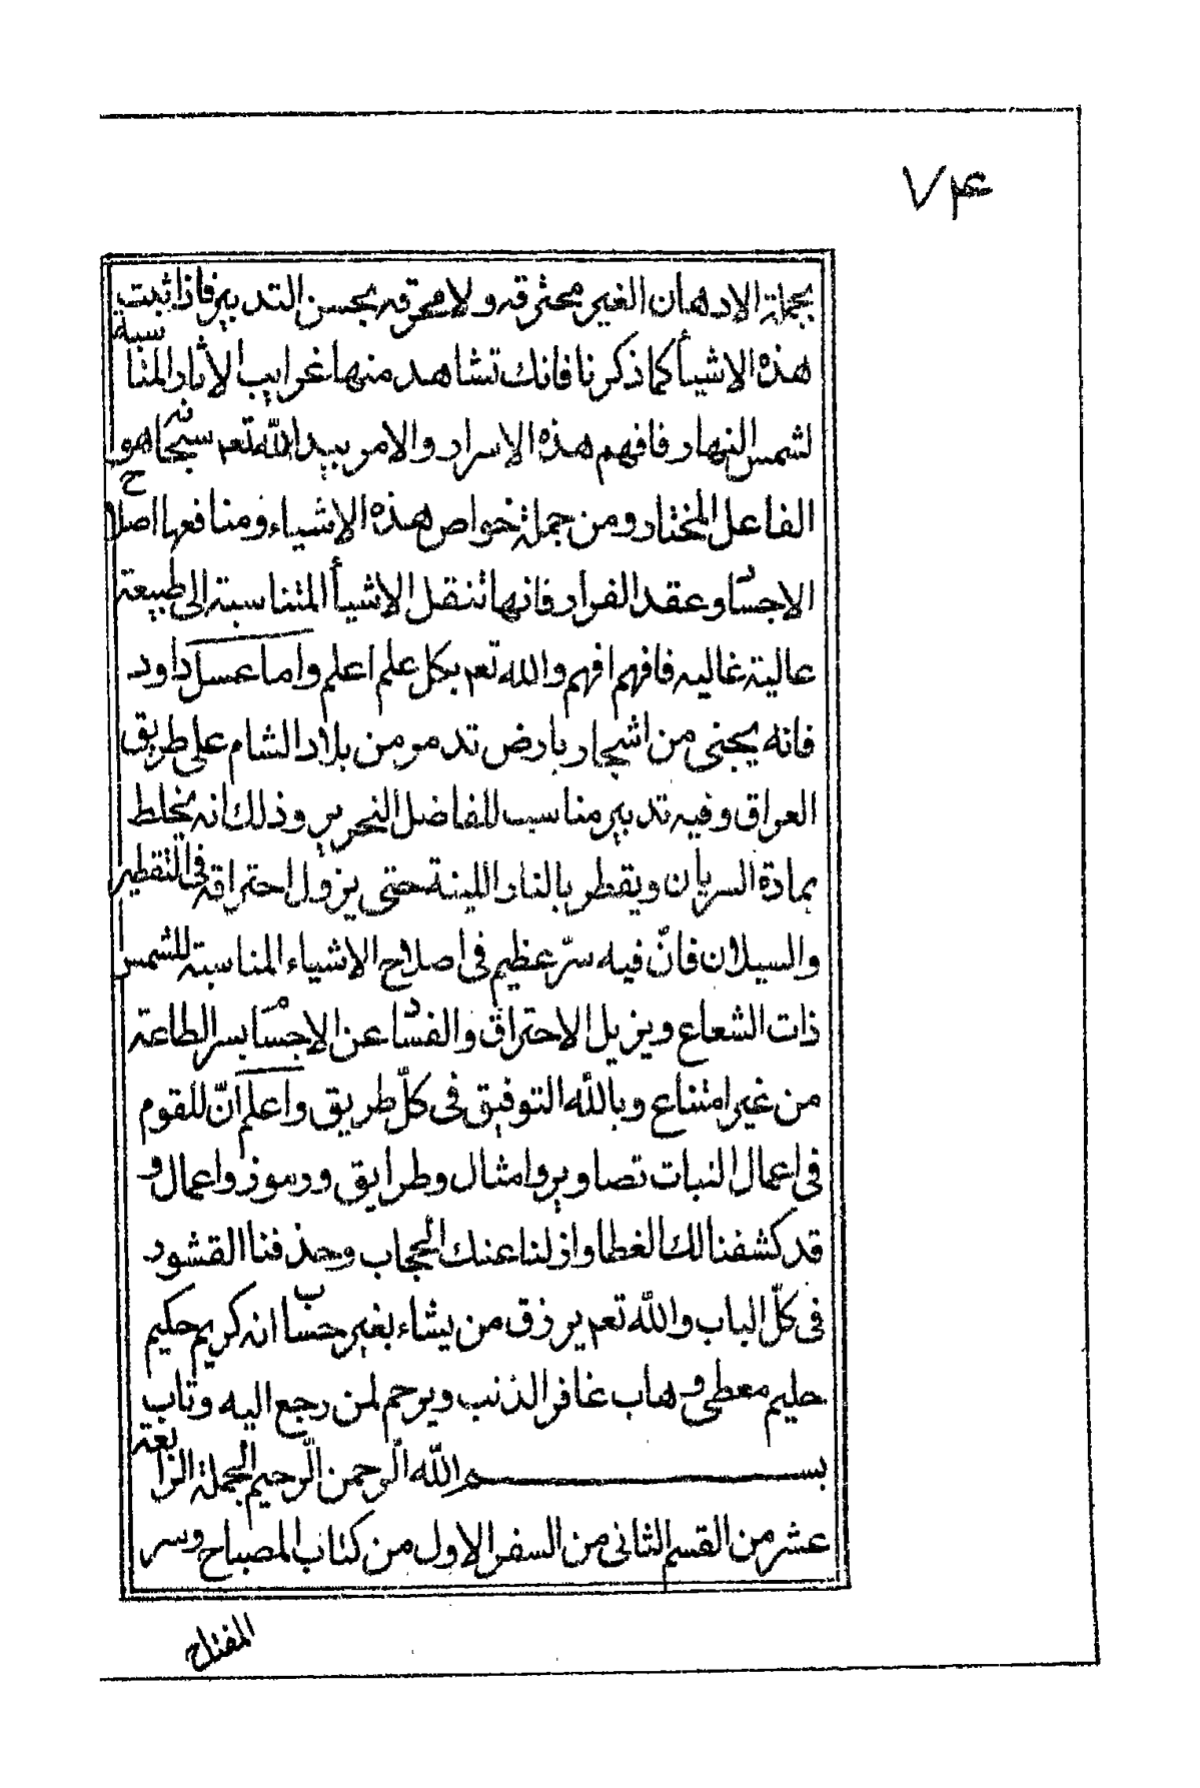 ۷۴
بجملة الادهان الغير محترقه ولا محرقه بحسن التدبير فاذا ثبت
هذه الاشيأ كما ذكرنا فانك تشاهد منها غرايب الاثار المناسبة
لشمس النهار فافهم هذه الاسرار والامر بيد الله تعم سبحانه هو
الفاعل المختار ومن جملة خواص هذه الاشياء ومنافعها اصلاح
الاجساد وعقد الفرار فانها تنقل الاشيأ المتناسبة الى طبيعة
عالية غاليه فافهم افهم والله تعم بكل علم اعلم واما عسل داود
فانه يجنى من اشجار بارض تدمر من بلاد الشام على طريق
العراق وفيه تدبير مناسب للفاضل النحرير وذلك انه يخلط
بمادة السريان ويقطر بالنار اللينة حتى يزول احتراقه فى التقطير
والسيلان فانّ فيه سرّ عظيم فى اصلاح الاشياء المناسبة للشمس
ذات الشعاع ويزيل الاحتراق والفساد عن الاجسام بسر الطاعة
من غير امتناع وبالله التوفيق فى كلّ طريق واعلم انّ للقوم
فى اعمال النبات تصاوير وامثال وطرايق ورموز واعمال و
قد كشفنا لك الغطا وازلنا عنك الحجاب وحذفنا القشور
فى كلّ الباب والله تعم يرزق من يشاء بغير حساب انه كريم حكيم
حليم معطى وهاب غافر الذنب ويرحم لمن رجع اليه وتاب
بســـــم الله الرّحمن الرّحيم الجملة الرابعة
عشر من القسم الثانى من السفر الاول من كتاب المصباح وسر
المفتاح